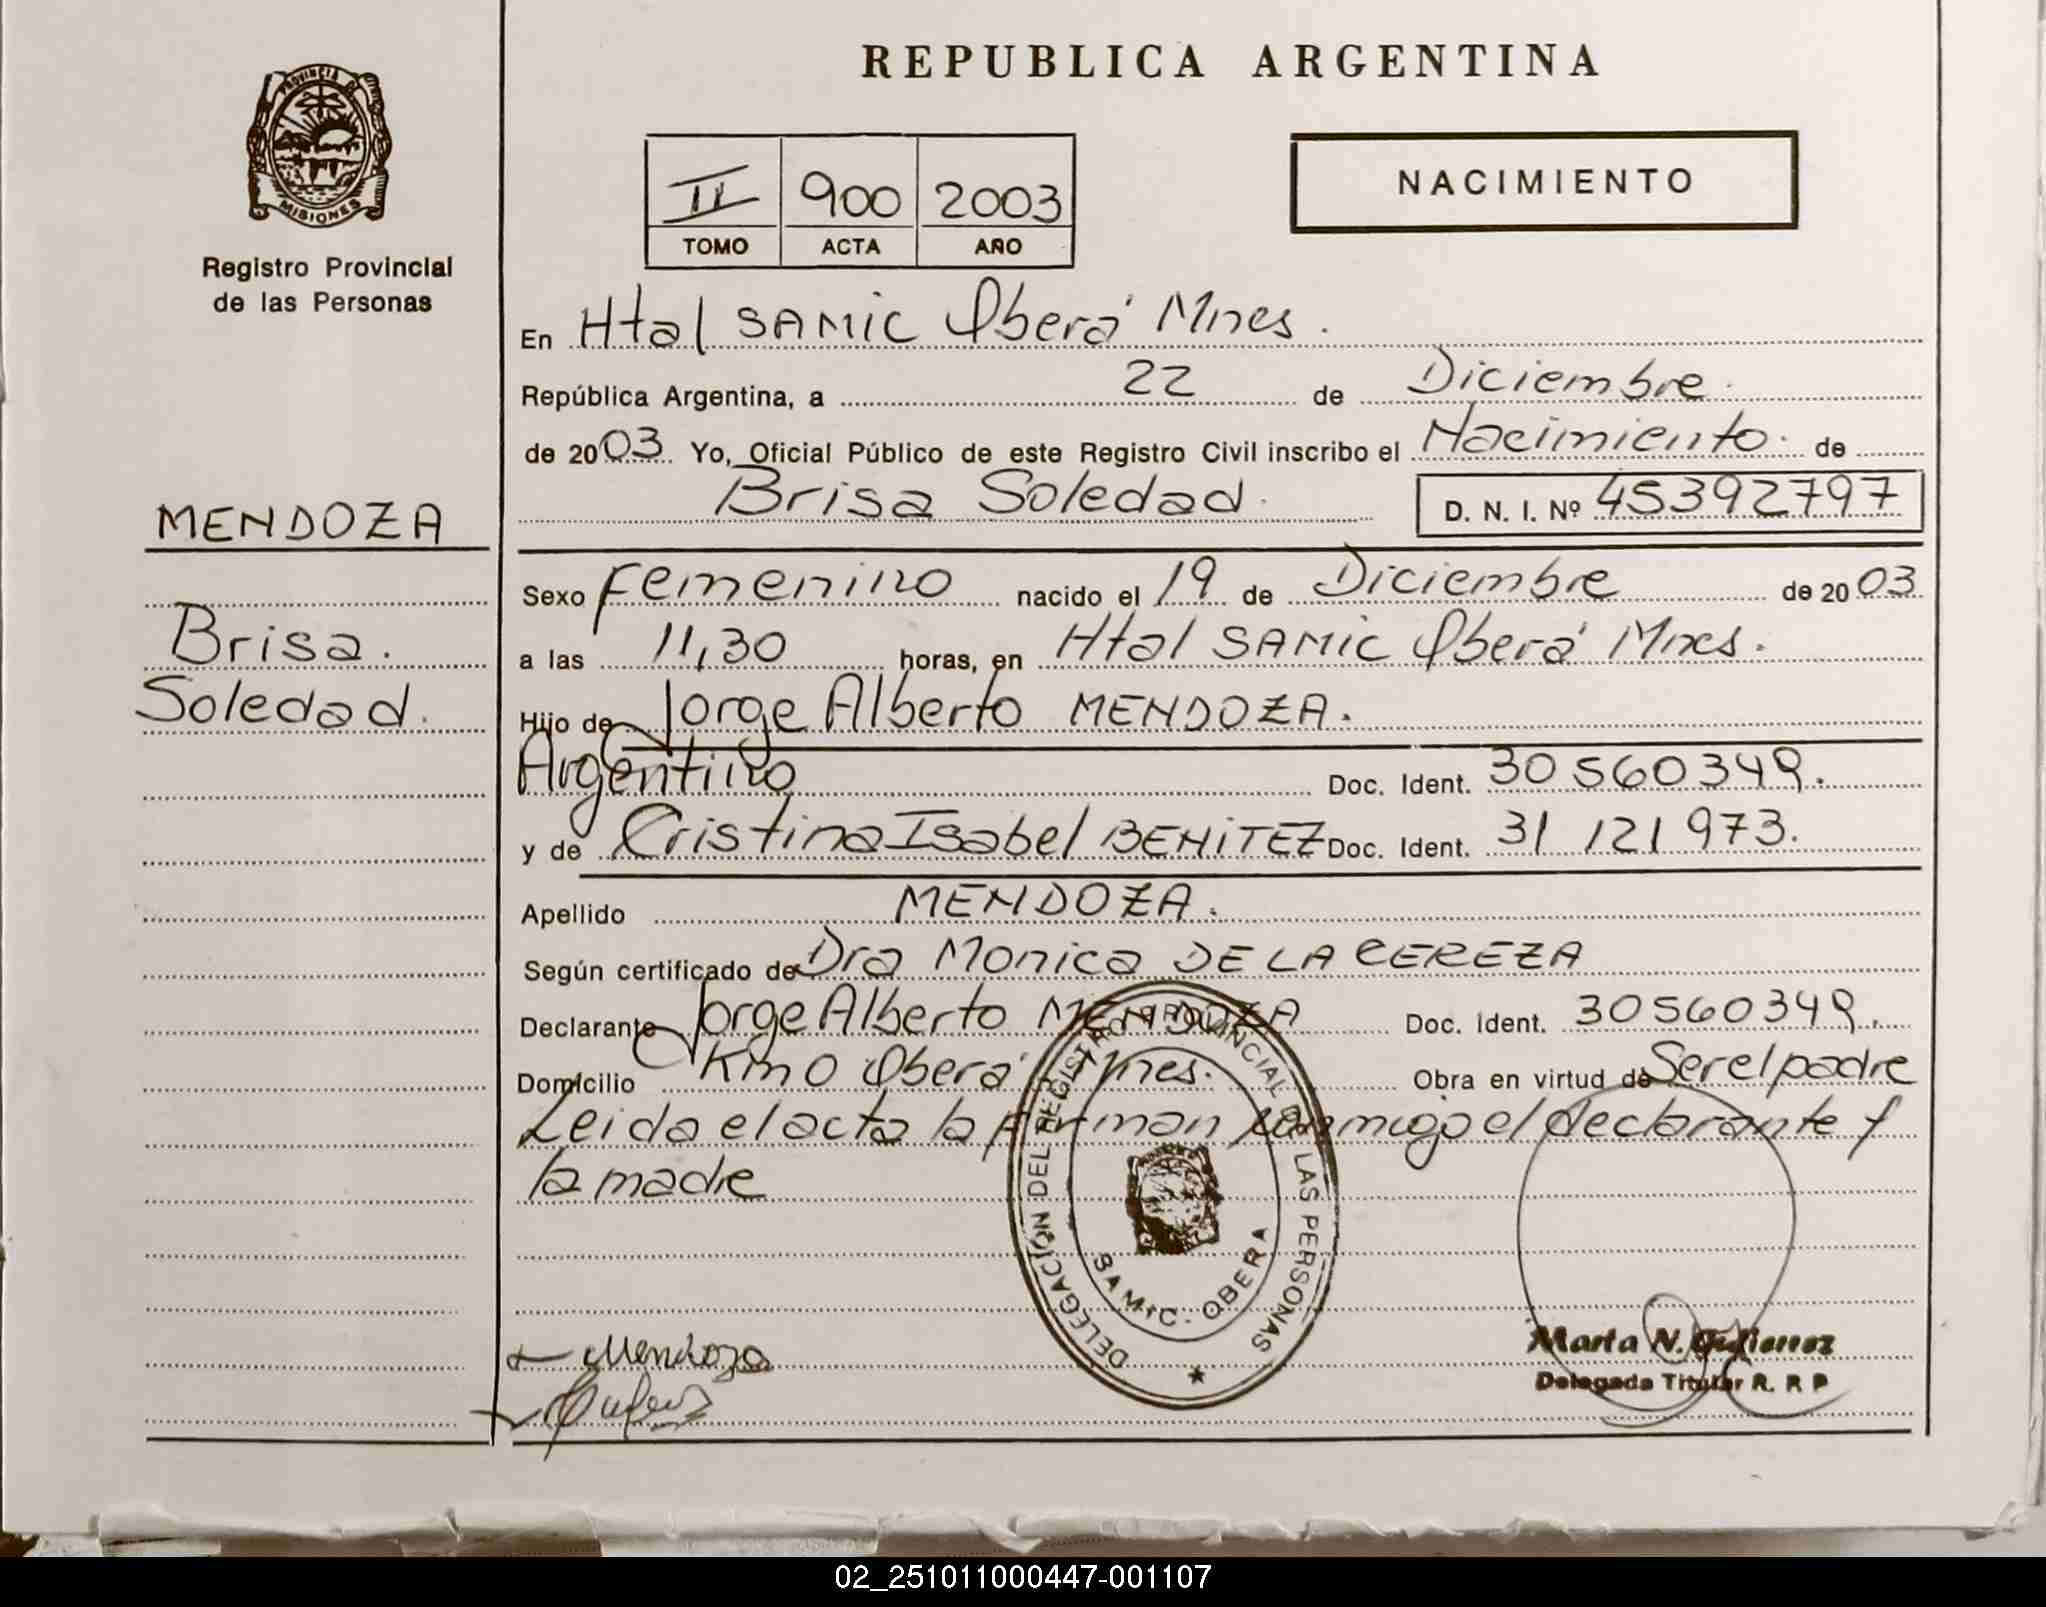 REPUBLICA ARGENTINA
PROVINCIA DE
MISIONES
Registro Provincial
de las Personas
II 900 2003
TOMO ACTA AÑO
NACIMIENTO
En Htal SAMIC Oberá Mnes.
República Argentina, a 22 de Diciembre.
de 2003 Yo, Oficial Público de este Registro Civil inscribo el Nacimiento. de
Brisa Soledad. D. N. I. Nº 45392797
MENDOZA
Brisa.
Soledad.
Sexo Femenino nacido el 19 de Diciembre de 2003
a las 11,30 horas, en Htal SAMIC Oberá Mnes.
Hijo de Jorge Alberto MENDOZA.
Argentino Doc. Ident. 30560349.
y de Cristina Isabel BENITEZ Doc. Ident. 31 121 973.
Apellido MENDOZA.
Según certificado de Dra Monica DE LA CEREZA
Declarante Jorge Alberto MENDOZA Doc. Ident. 30560349.
Domicilio Km0 Oberá Mnes. Obra en virtud de Ser el padre
Leida el acta la firman conmigo el declarante y
la madre
DELEGACIÓN DEL REGISTRO PROVINCIAL DE LAS PERSONAS
SAMIC - OBERA
Mendoza
Marta N. Gutierrez
Delegada Titular R. R P
02_251011000447-001107